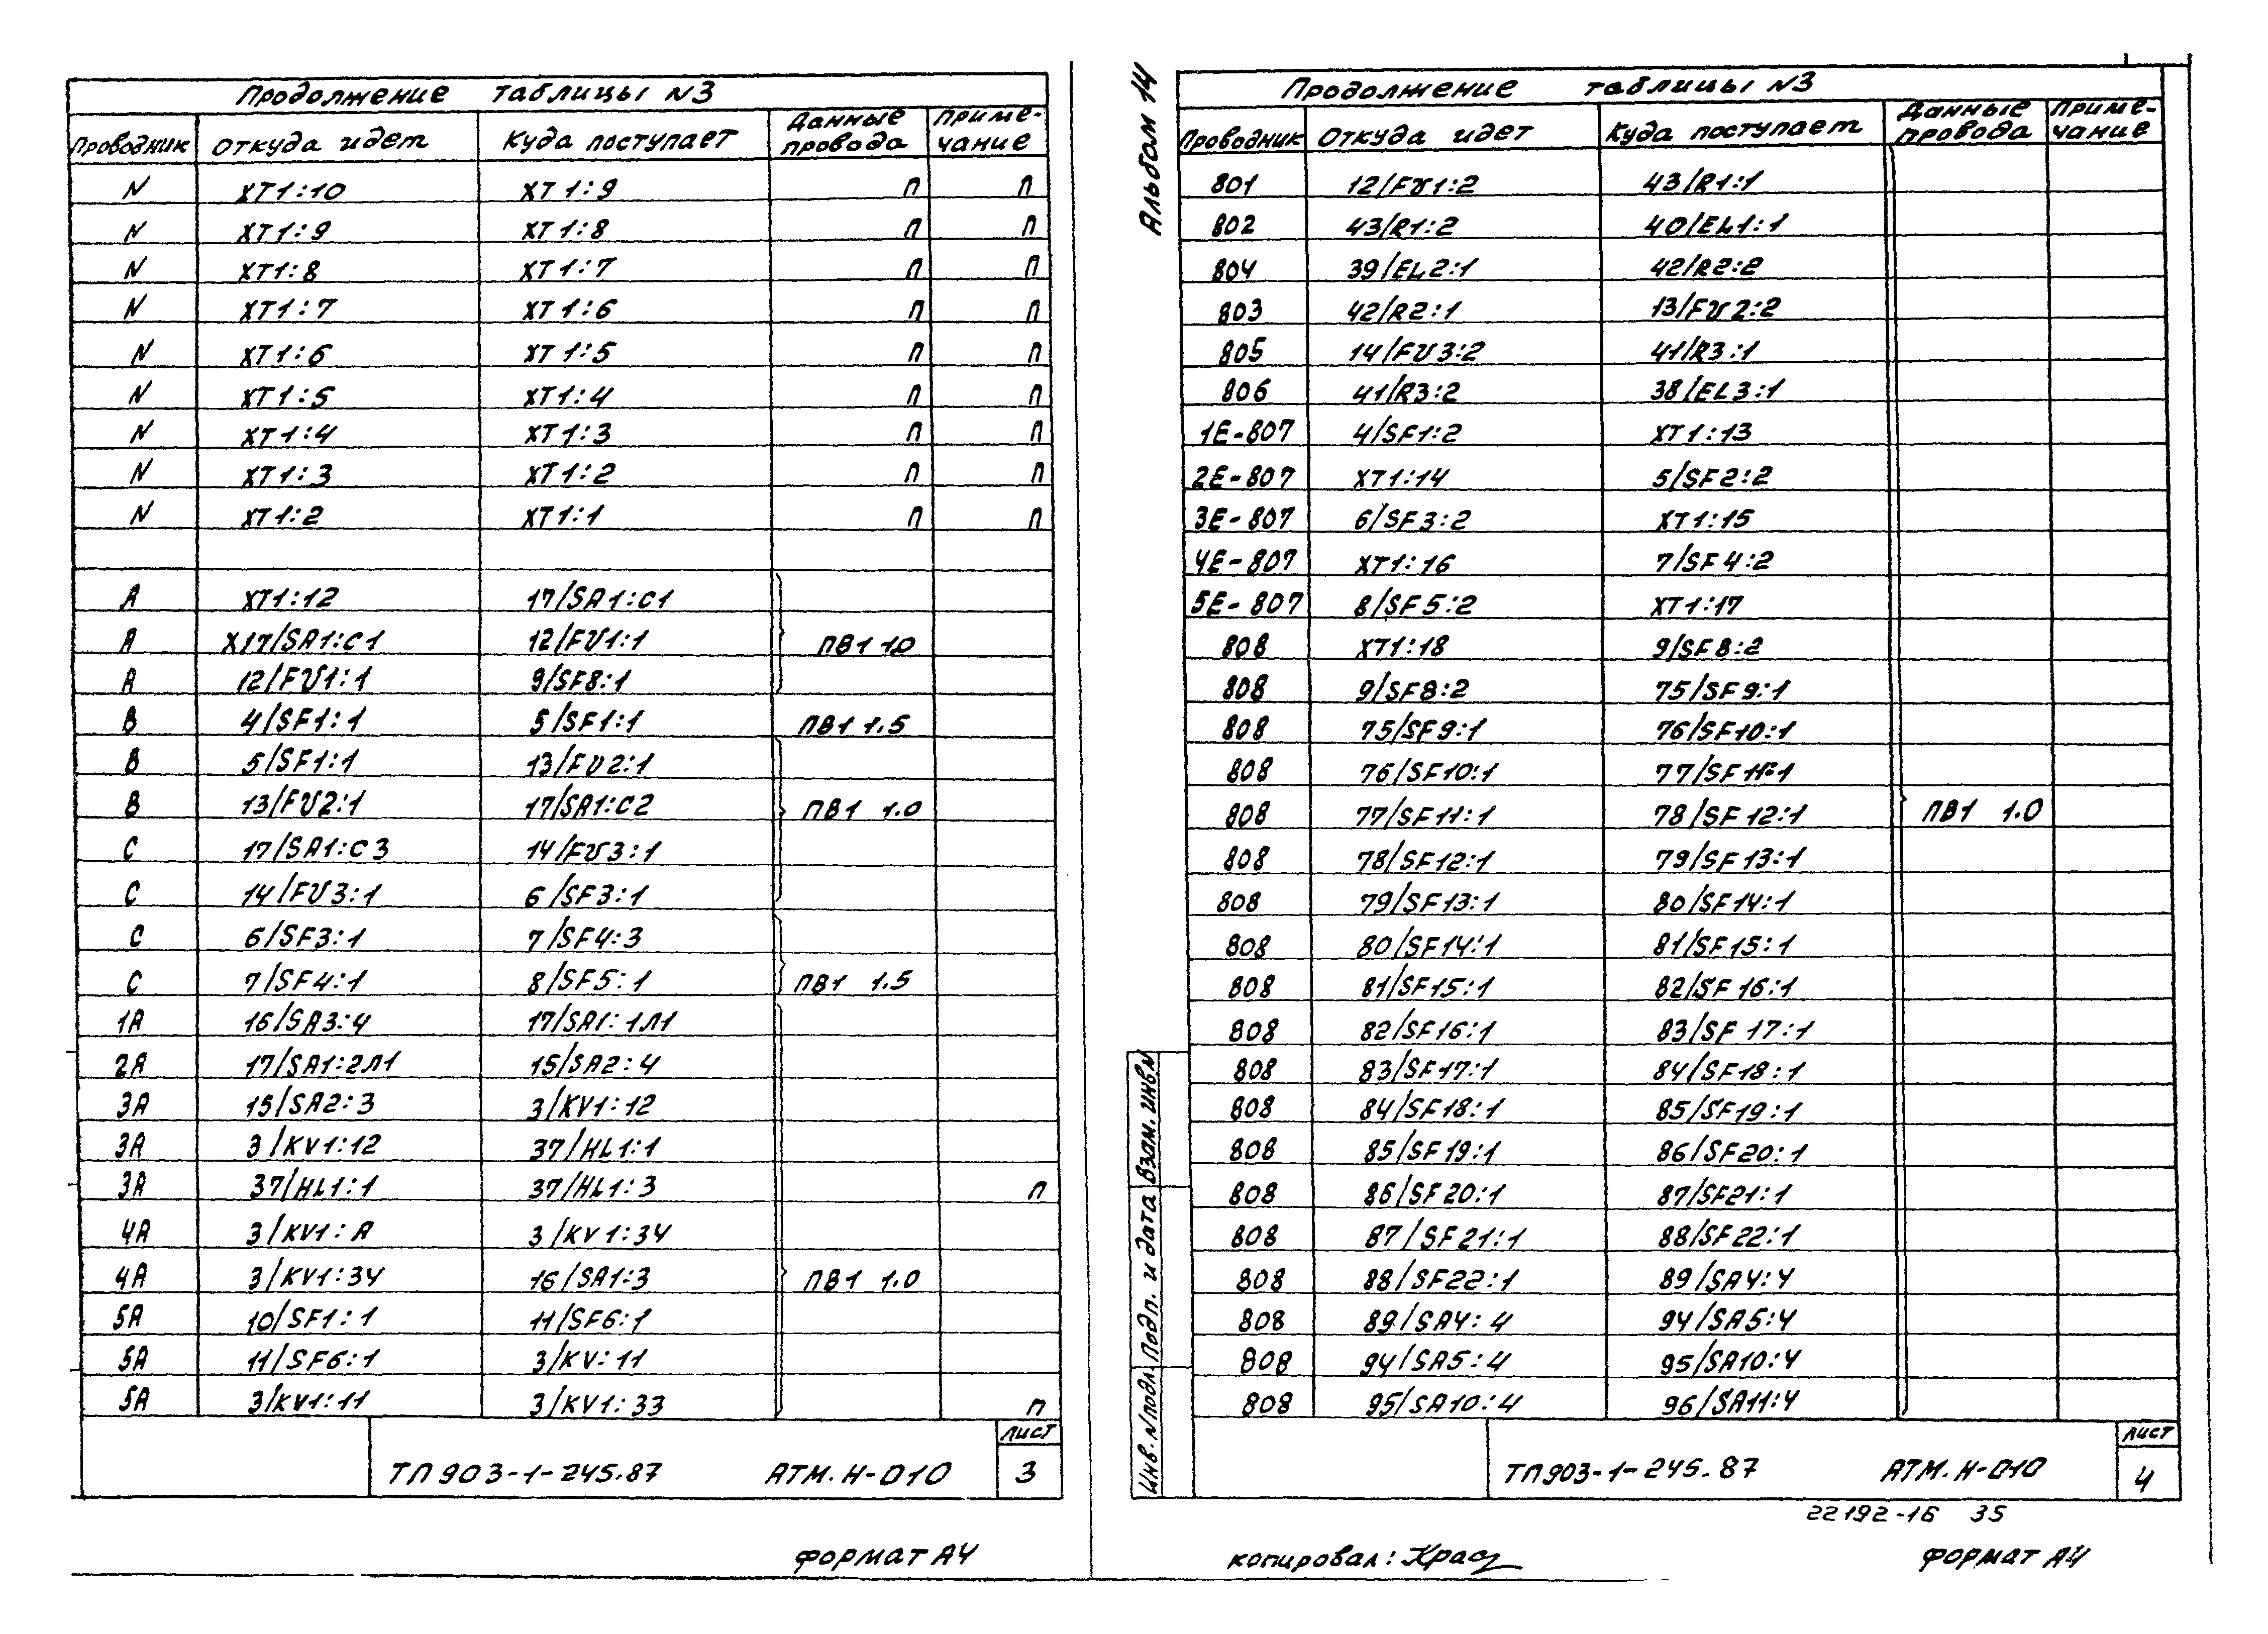 Продолжение таблицы N3
Проводник Откуда идет Куда поступает Данные провода Приме-чание
N XT1:10 XT1:9 П П
N XT1:9 XT1:8 П П
N XT1:8 XT1:7 П П
N XT1:7 XT1:6 П П
N XT1:6 XT1:5 П П
N XT1:5 XT1:4 П П
N XT1:4 XT1:3 П П
N XT1:3 XT1:2 П П
N XT1:2 XT1:1 П П
A XT1:12 17/SA1:C1
A X17/SA1:C1 12/FU1:1 ПВ1 1.0
A 12/FU1:1 9/SF8:1
B 4/SF1:1 5/SF1:1 ПВ1 1.5
B 5/SF1:1 13/FU2:1
B 13/FU2:1 17/SA1:C2 ПВ1 1.0
C 17/SA1:C3 14/FU3:1
C 14/FU3:1 6/SF3:1
C 6/SF3:1 7/SF4:3
C 7/SF4:1 8/SF5:1 ПВ1 1.5
1A 16/SA3:4 17/SA1:1Л1
2A 17/SA1:2Л1 15/SA2:4
3A 15/SA2:3 3/KV1:12
3A 3/KV1:12 37/HL1:1
3A 37/HL1:1 37/HL1:3 П
4A 3/KV1:A 3/KV1:34
4A 3/KV1:34 16/SA1:3 ПВ1 1.0
5A 10/SF1:1 11/SF6:1
5A 11/SF6:1 3/KV:11
5A 3/KV1:11 3/KV1:33 П
ТП903-1-245.87 АТМ.Н-010
Лист
3
Формат А4
Альбом 14
Продолжение таблицы N3
Проводник Откуда идет Куда поступает Данные провода Приме-чание
801 12/FU1:2 43/R1:1
802 43/R1:2 40/EL1:1
804 39/EL2:1 42/R2:2
803 42/R2:1 13/FU2:2
805 14/FU3:2 41/R3:1
806 41/R3:2 38/EL3:1
1E-807 4/SF1:2 XT1:13
2E-807 XT1:14 5/SF2:2
3E-807 6/SF3:2 XT1:15
4E-807 XT1:16 7/SF4:2
5E-807 8/SF5:2 XT1:17
808 XT1:18 9/SF8:2
808 9/SF8:2 75/SF9:1
808 75/SF9:1 76/SF10:1
808 76/SF10:1 77/SF11:1
808 77/SF11:1 78/SF12:1 ПВ1 1.0
808 78/SF12:1 79/SF13:1
808 79/SF13:1 80/SF14:1
808 80/SF14:1 81/SF15:1
808 81/SF15:1 82/SF16:1
808 82/SF16:1 83/SF17:1
808 83/SF17:1 84/SF18:1
808 84/SF18:1 85/SF19:1
808 85/SF19:1 86/SF20:1
808 86/SF20:1 87/SF21:1
808 87/SF21:1 88/SF22:1
808 88/SF22:1 89/SA4:4
808 89/SA4:4 94/SA5:4
808 94/SA5:4 95/SA10:4
808 95/SA10:4 96/SA11:4
Взам. инв.N
Подп. и дата
Инв. N подл.
ТП903-1-245.87 АТМ.Н-010
Лист
4
22192-16 35
копировал: Крас
Формат А4